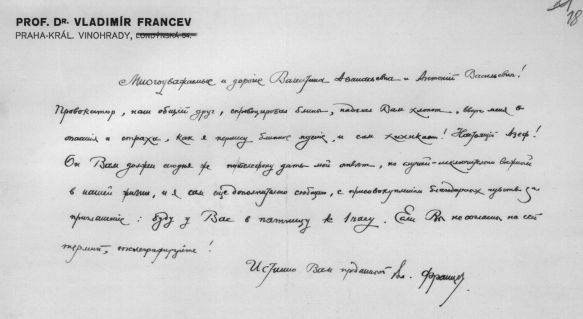 28
PROF. DR. VLADIMÍR FRANCEV
PRAHA-KRÁL. VINOHRADY, LONDÝNSKÁ 54.
Многоуважаемые и дорогие Валентина Афанасьевна и Антоний Васильевич!
Провокатор, наш общий друг, спровоцировал блины, наделал Вам хлопот, вверг меня в
опасения и страхи, как я перенесу блинное, и сам хихикает! Настоящий Азеф!
Он Вам должен сегодня же по телефону дать мой ответ, но случай исключительно важный
в нашей жизни, и я сам ещё дополнительно сообщаю, с присовокуплением благодарных чувств за
приглашение: буду у Вас в пятницу к 1 часу. Если Вы не согласны на сей
термин, телеграфируйте!
Истинно Вам преданный Вл. Францев.